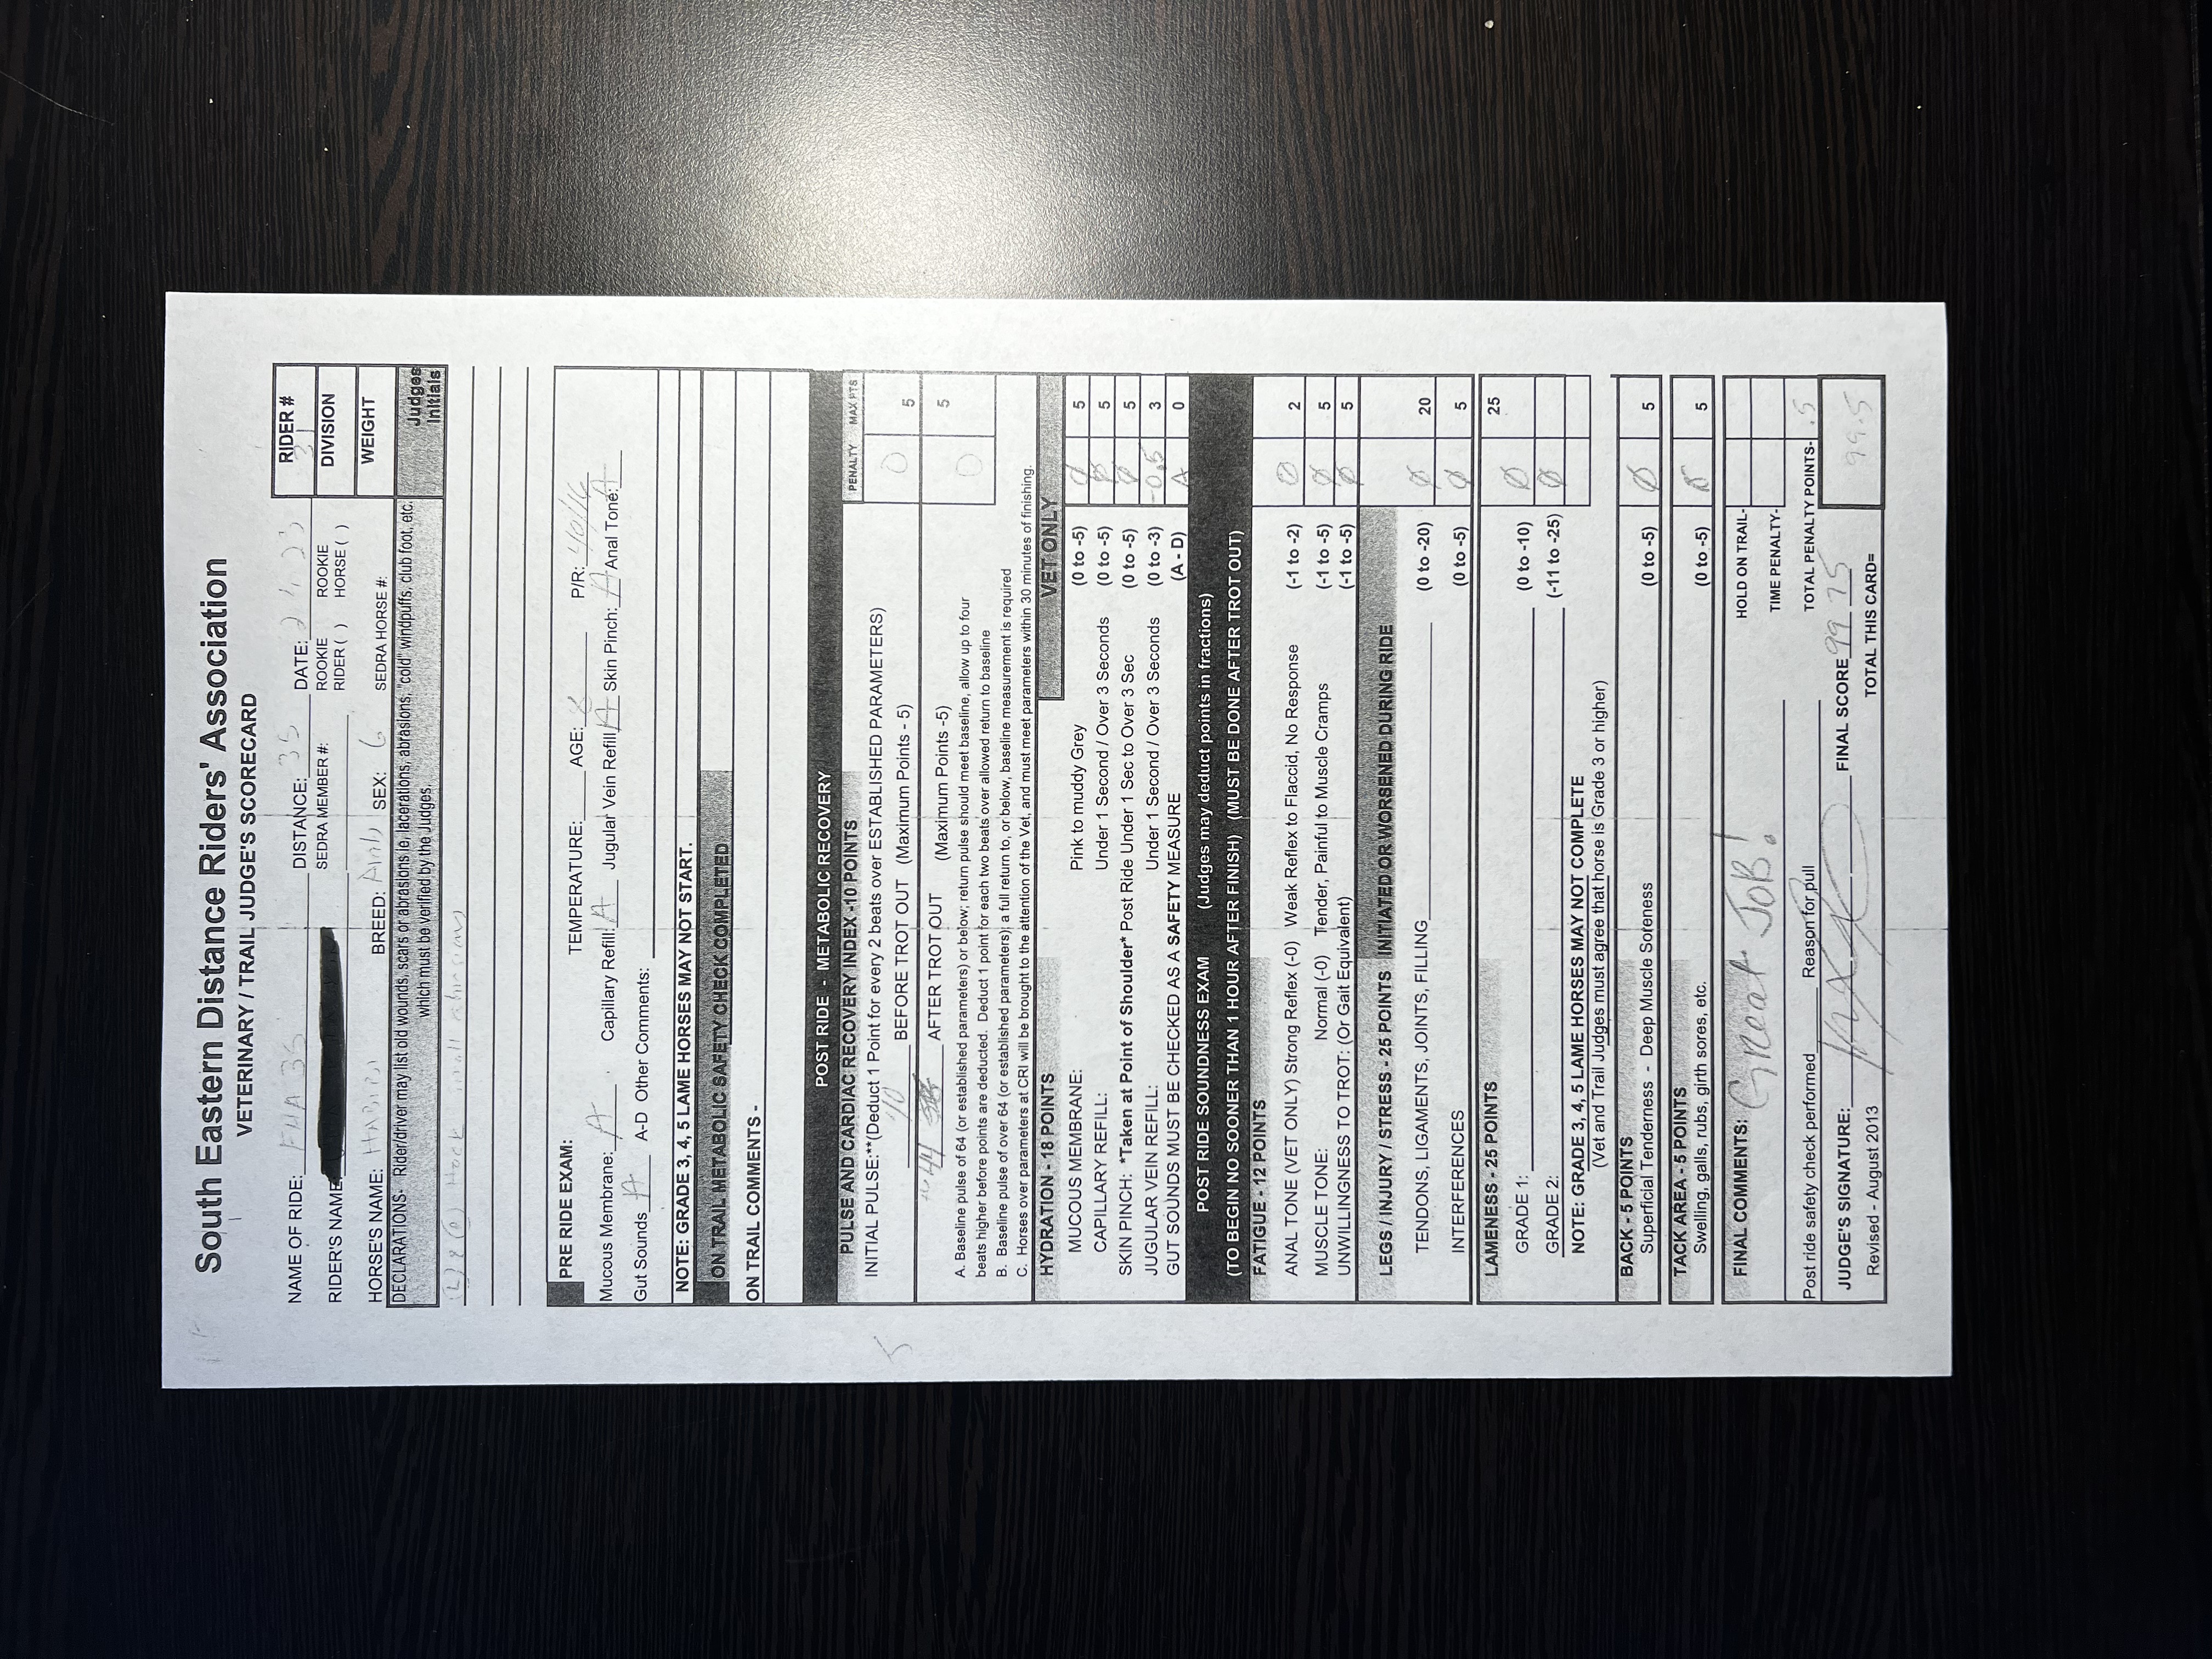 South Eastern Distance Riders' Association
VETERINARY / TRAIL JUDGE'S SCORECARD
NAME OF RIDE: FHA 35 DISTANCE: 35 DATE: 2 4 23 RIDER # 31
RIDER'S NAME: SEDRA MEMBER #: ROOKIE RIDER ( ) ROOKIE HORSE ( ) DIVISION
HORSE'S NAME: HABIBI BREED: Arab SEX: G SEDRA HORSE #: WEIGHT
DECLARATIONS- Rider/driver may list old wounds, scars or abrasions ie, lacerations, abrasions, "cold" windpuffs, club foot, etc. Judges
which must be verified by the Judges. Initials
(L) & (R) Hock small abrasions
PRE RIDE EXAM:
TEMPERATURE: AGE: 8 P/R: 40/16
Mucous Membrane: A Capillary Refill: A Jugular Vein Refill A Skin Pinch: A Anal Tone: A
Gut Sounds A A-D Other Comments:
NOTE: GRADE 3, 4, 5 LAME HORSES MAY NOT START.
ON TRAIL METABOLIC SAFETY CHECK COMPLETED
ON TRAIL COMMENTS -
POST RIDE - METABOLIC RECOVERY
PULSE AND CARDIAC RECOVERY INDEX -10 POINTS PENALTY MAX PTS
INITIAL PULSE:**(Deduct 1 Point for every 2 beats over ESTABLISHED PARAMETERS)
40 BEFORE TROT OUT (Maximum Points - 5) 0 5
44 AFTER TROT OUT (Maximum Points -5) 0 5
A. Baseline pulse of 64 (or established parameters) or below; return pulse should meet baseline, allow up to four
beats higher before points are deducted. Deduct 1 point for each two beats over allowed return to baseline
B. Baseline pulse of over 64 (or established parameters); a full return to, or below, baseline measurement is required
C. Horses over parameters at CRI will be brought to the attention of the Vet, and must meet parameters within 30 minutes of finishing.
HYDRATION - 18 POINTS VET ONLY
MUCOUS MEMBRANE: Pink to muddy Grey (0 to -5) Ø 5
CAPILLARY REFILL: Under 1 Second / Over 3 Seconds (0 to -5) Ø 5
SKIN PINCH: *Taken at Point of Shoulder* Post Ride Under 1 Sec to Over 3 Sec (0 to -5) Ø 5
JUGULAR VEIN REFILL: Under 1 Second / Over 3 Seconds (0 to -3) -0.5 3
GUT SOUNDS MUST BE CHECKED AS A SAFETY MEASURE (A - D) A 0
POST RIDE SOUNDNESS EXAM (Judges may deduct points in fractions)
(TO BEGIN NO SOONER THAN 1 HOUR AFTER FINISH) (MUST BE DONE AFTER TROT OUT)
FATIGUE - 12 POINTS
ANAL TONE (VET ONLY) Strong Reflex (-0) Weak Reflex to Flaccid, No Response (-1 to -2) Ø 2
MUSCLE TONE: Normal (-0) Tender, Painful to Muscle Cramps (-1 to -5) Ø 5
UNWILLINGNESS TO TROT: (Or Gait Equivalent) (-1 to -5) Ø 5
LEGS / INJURY / STRESS - 25 POINTS INITIATED OR WORSENED DURING RIDE
TENDONS, LIGAMENTS, JOINTS, FILLING (0 to -20) Ø 20
INTERFERENCES (0 to -5) Ø 5
LAMENESS - 25 POINTS 25
GRADE 1: (0 to -10) Ø
GRADE 2: (-11 to -25) Ø
NOTE: GRADE 3, 4, 5 LAME HORSES MAY NOT COMPLETE
(Vet and Trail Judges must agree that horse is Grade 3 or higher)
BACK - 5 POINTS
Superficial Tenderness - Deep Muscle Soreness (0 to -5) Ø 5
TACK AREA - 5 POINTS
Swelling, galls, rubs, girth sores, etc. (0 to -5) 5
FINAL COMMENTS: Great JOB! HOLD ON TRAIL-
TIME PENALTY-
Post ride safety check performed Reason for pull TOTAL PENALTY POINTS- .5
JUDGE'S SIGNATURE: FINAL SCORE 99 75
Revised - August 2013 TOTAL THIS CARD= 99.5